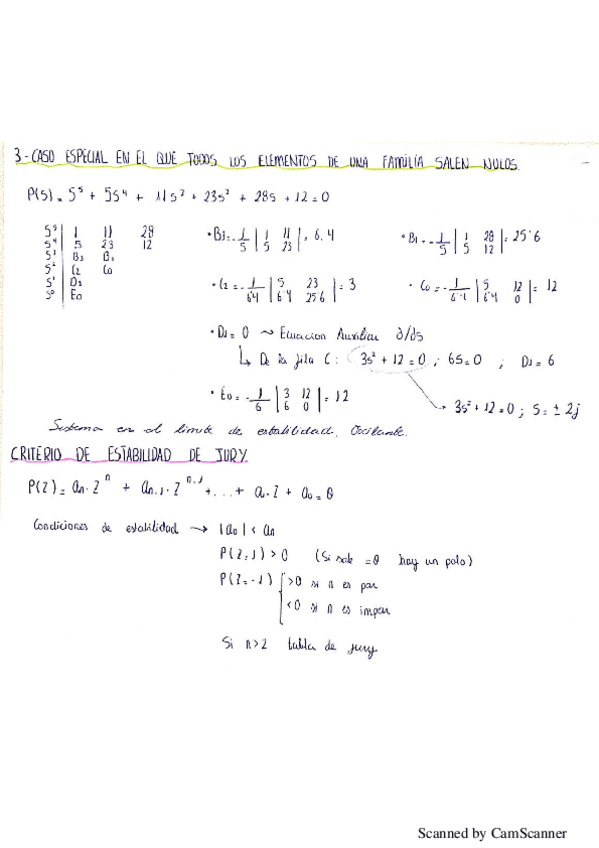 3-CASO ESPECIAL EN EL QUE TODOS LOS ELEMENTOS DE UNA FAMILIA SALEN NULOS.
P(S) = S⁵ + 5S⁴ + 11S³ + 23S² + 28S + 12 = 0
S⁵ | 1 11 28
S⁴ | 5 23 12
S³ | B₃ B₁
S² | C₂ C₀
S¹ | D₁
S⁰ | E₀
• B₃ = -1/5 | 1 11 ; 5 23 | = 6.4
• B₁ = -1/5 | 1 28 ; 5 12 | = 25'6
• C₂ = -1/6'4 | 5 23 ; 6'4 25'6 | = 3
• C₀ = -1/6'4 | 5 12 ; 6'4 0 | = 12
• D₁ = 0 ~ Ecuacion Auxiliar ∂/∂s
↳ De la fila C: 3s² + 12 = 0 ; 6S = 0 ; D₁ = 6
• E₀ = -1/6 | 3 12 ; 6 0 | = 12
3s² + 12 = 0 ; S = ± 2j
Sistema en el limite de estabilidad. Oscilante.
CRITERIO DE ESTABILIDAD DE JURY
P(Z) = aₙ · Zⁿ + aₙ₋₁ · Zⁿ⁻¹ + ... + a₁ · Z + a₀ = 0
Condiciones de estabilidad → |a₀| < aₙ
P(Z=1) > 0 (Si sale = 0 hay un polo)
P(Z=-1) { >0 si n es par
<0 si n es impar
Si n>2 tabla de jury
Scanned by CamScanner